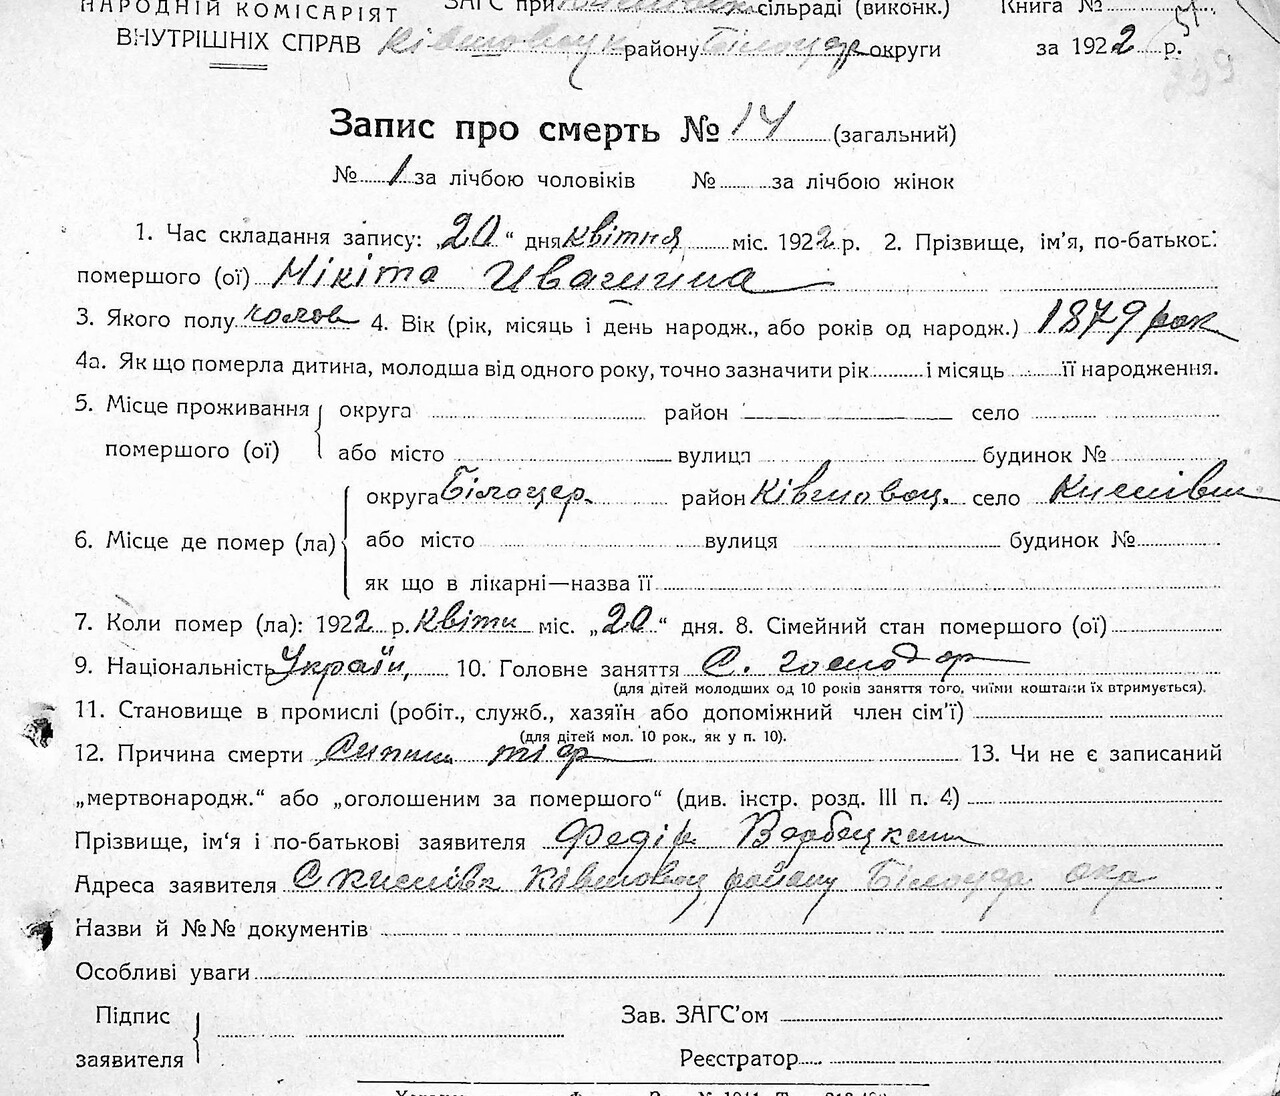 НАРОДНІЙ КОМІСАРІЯТ ЗАГС при сільраді (виконк.) Книга № 51
ВНУТРІШНІХ СПРАВ Ківшовоцк району Білоцер округи за 1922 р.
Запис про смерть № 14 (загальний)
№ 1 за лічбою чоловіків № за лічбою жінок
1. Час складання запису: „20“ дня квітня міс. 1922 р. 2. Прізвище, ім'я, по-батькові
помершого (ої) Мікіта
3. Якого полу чолов 4. Вік (рік, місяць і день народж., або років од народж.) 1879 рок
4а. Як що померла дитина, молодша від одного року, точно зазначити рік і місяць її народження.
5. Місце проживання округа район село
помершого (ої) або місто вулиця будинок №
округа Білоцер. район Ківшовоц. село
6. Місце де помер (ла) або місто вулиця будинок №
як що в лікарні—назва її
7. Коли помер (ла): 1922 р. квітн міс. „20“ дня. 8. Сімейний стан помершого (ої)
9. Національність Україн, 10. Головне заняття С. господар
(для дітей молодших од 10 років заняття того, чиїми коштами їх втримується).
11. Становище в промислі (робіт., служб., хазяїн або допоміжний член сім'ї)
(для дітей мол. 10 рок., як у п. 10).
12. Причина смерти Сипни тіф 13. Чи не є записаний
„мертвонародж.“ або „оголошеним за помершого“ (див. інстр. розд. III п. 4)
Прізвище, ім'я і по-батькові заявителя Федір Вербецкий
Адреса заявителя С Ківшовоц району Білоцер окр
Назви й №№ документів
Особливі уваги
Підпис Зав. ЗАГС'ом
заявителя Реєстратор